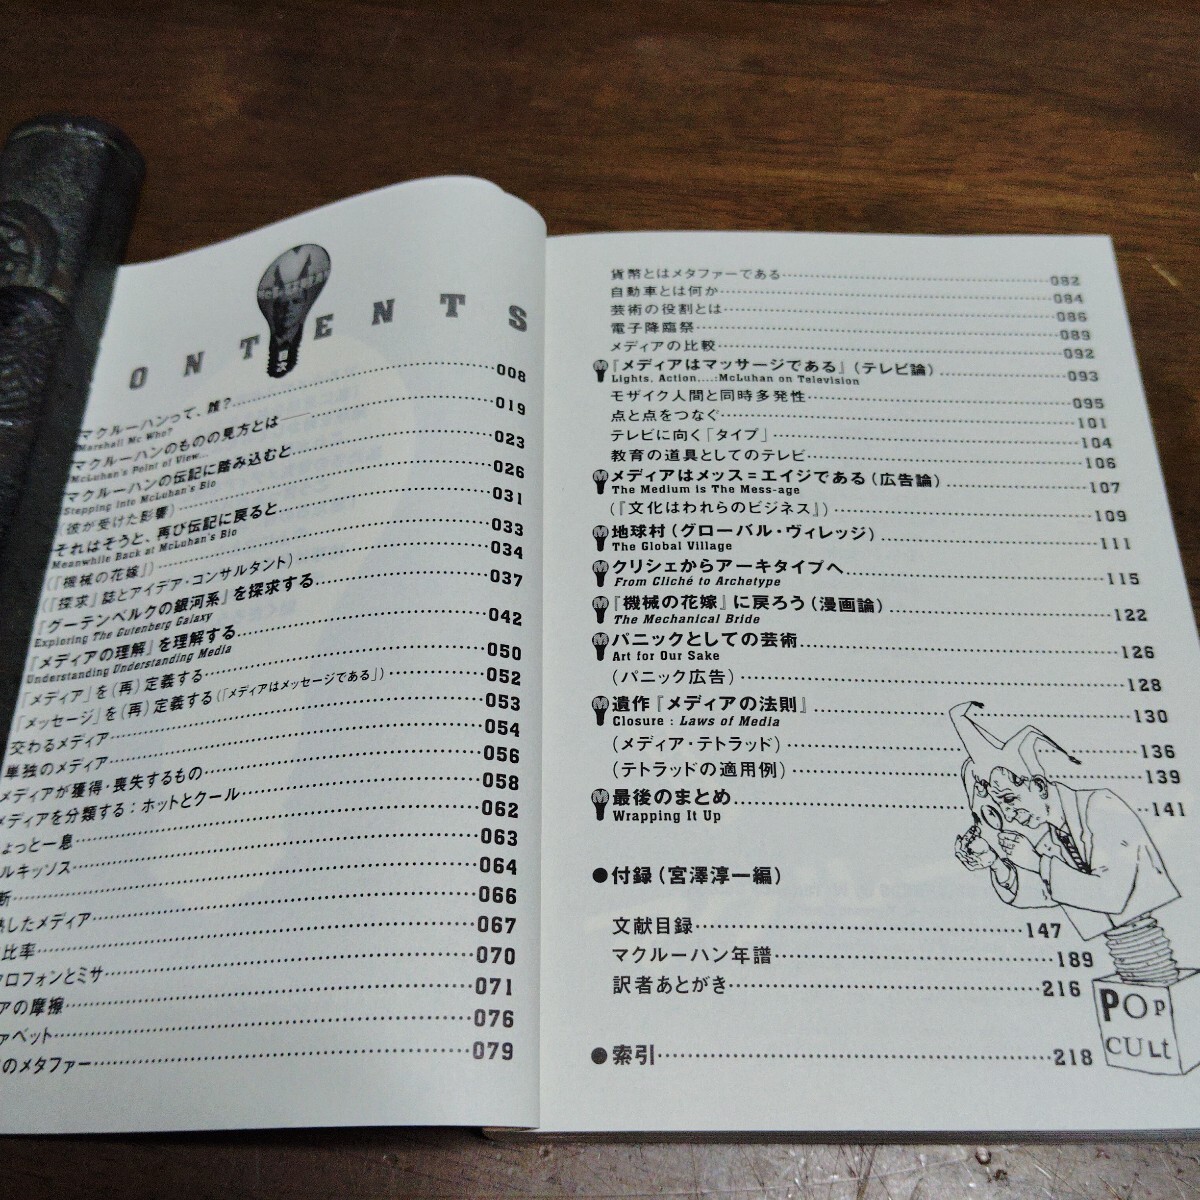 ONTENTS
目次
マクルーハンって、誰?……008
Marshall Mc Who?
マクルーハンのものの見方とは……019
McLuhan's Point of View...
マクルーハンの伝記に踏み込むと……023
Stepping into McLuhan's Bio
(彼が受けた影響)……026
それはそうと、再び伝記に戻ると……031
Meanwhile Back at McLuhan's Bio
(『機械の花嫁』)……033
(『探求』誌とアイデア・コンサルタント)……034
『グーテンベルクの銀河系』を探求する……037
Exploring The Gutenberg Galaxy
『メディアの理解』を理解する……042
Understanding Understanding Media
「メディア」を(再)定義する……050
「メッセージ」を(再)定義する(「メディアはメッセージである」)……052
交わるメディア……053
単独のメディア……054
メディアが獲得・喪失するもの……056
メディアを分類する:ホットとクール……058
ょっと一息……062
ルキッソス……063
断……064
熱したメディア……066
比率……067
クロフォンとミサ……070
アの摩擦……071
ァベット……076
のメタファー……079
貨幣とはメタファーである……082
自動車とは何か……084
芸術の役割とは……086
電子降臨祭……089
メディアの比較……092
『メディアはマッサージである』(テレビ論)……093
Lights, Action....:McLuhan on Television
モザイク人間と同時多発性……095
点と点をつなぐ……101
テレビに向く「タイプ」……104
教育の道具としてのテレビ……106
メディアはメッス=エイジである(広告論)……107
The Medium is The Mess-age
(『文化はわれらのビジネス』)……109
地球村(グローバル・ヴィレッジ)……111
The Global Village
クリシェからアーキタイプへ……115
From Cliché to Archetype
『機械の花嫁』に戻ろう(漫画論)……122
The Mechanical Bride
パニックとしての芸術……126
Art for Our Sake
(パニック広告)……128
遺作『メディアの法則』……130
Closure : Laws of Media
(メディア・テトラッド)……136
(テトラッドの適用例)……139
最後のまとめ……141
Wrapping It Up
●付録(宮澤淳一編)
文献目録……147
マクルーハン年譜……189
訳者あとがき……216
●索引……218
POP
CULt